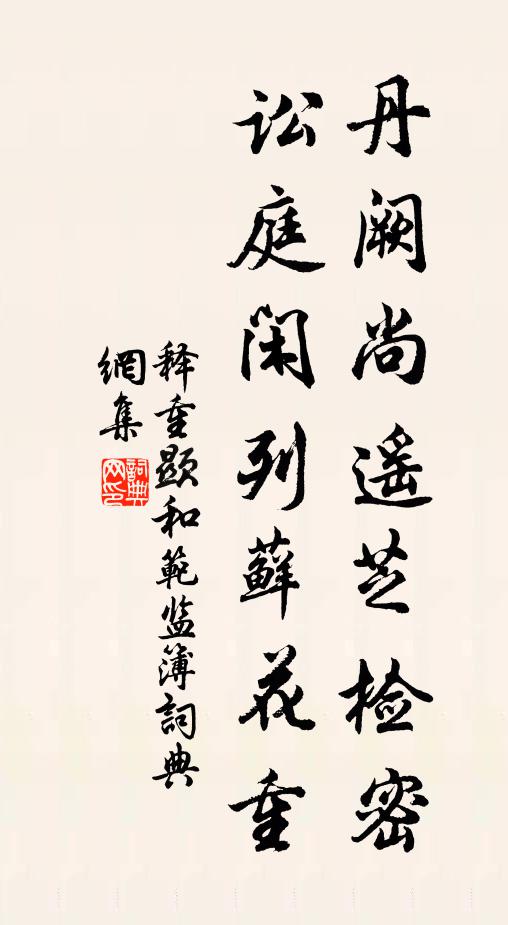 丹阙尚遥芝检密
讼庭闲列藓花重
释重顯和範监簿詞典
網集
詞典
网印